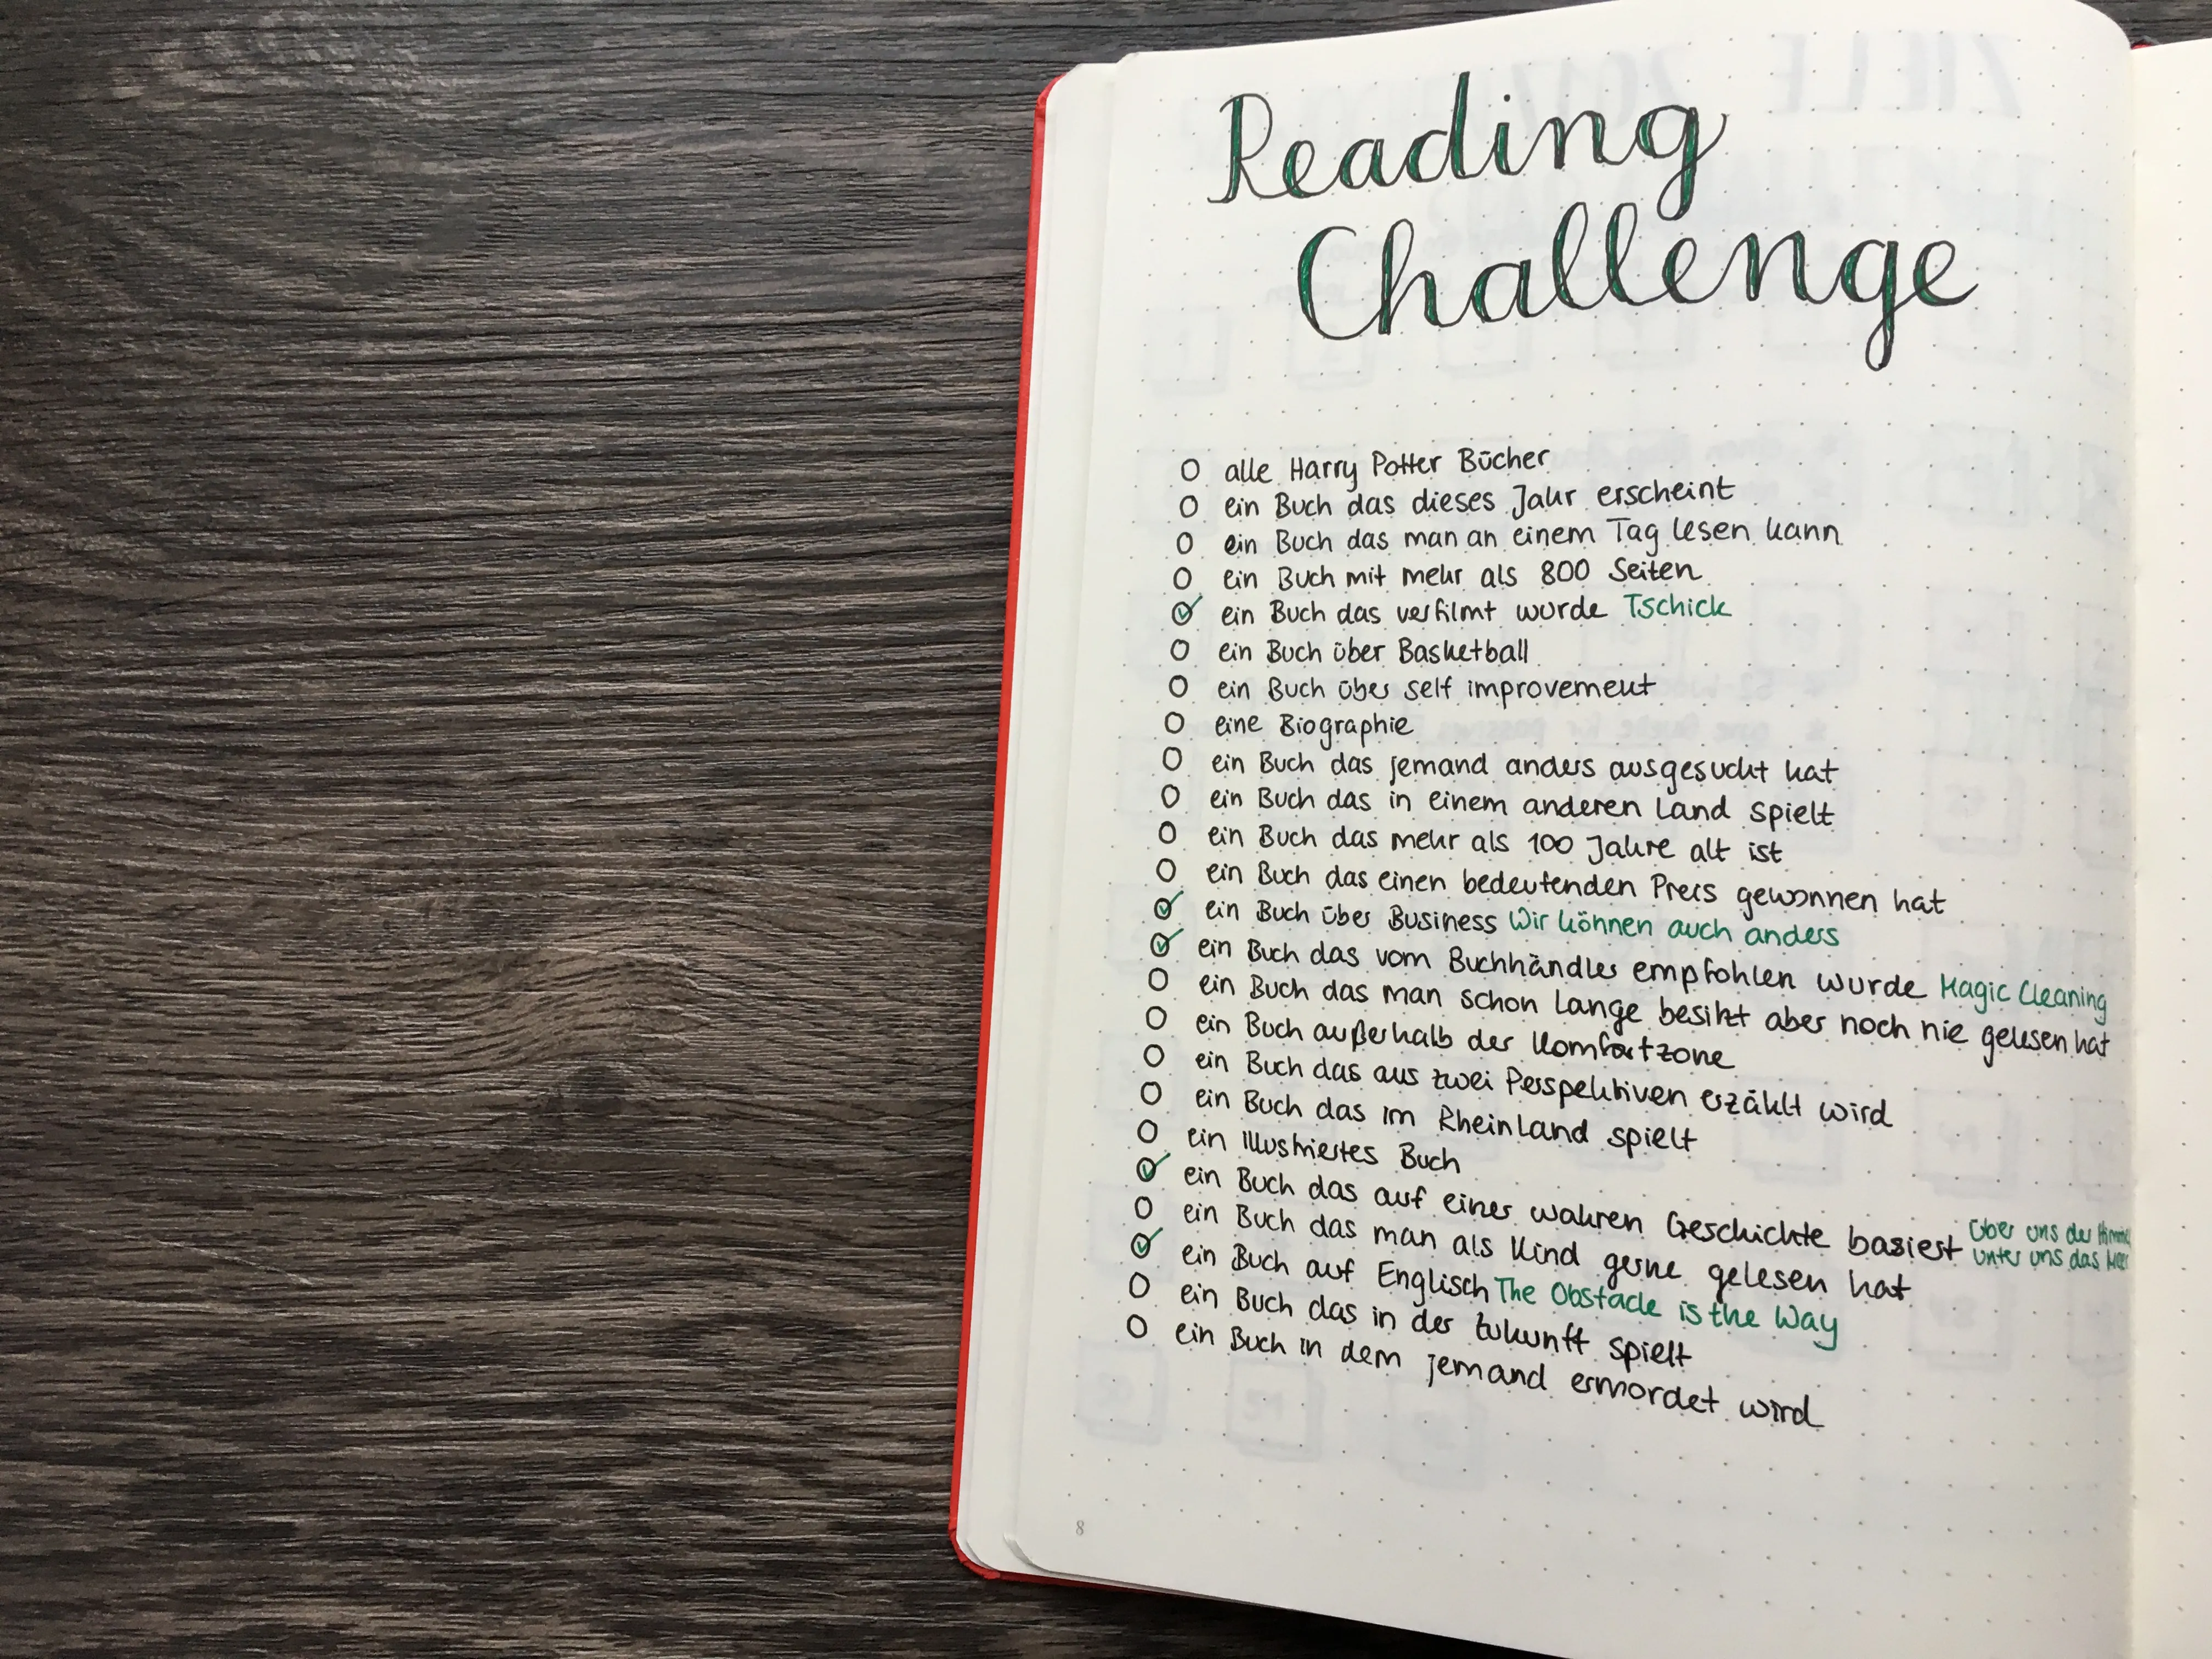 Reading
Challenge
alle Harry Potter Bücher
ein Buch das dieses Jahr erscheint
ein Buch das man an einem Tag lesen kann
ein Buch mit mehr als 800 Seiten
ein Buch das verfilmt wurde Tschick
ein Buch über Basketball
ein Buch über self improvement
eine Biographie
ein Buch das jemand anders ausgesucht hat
ein Buch das in einem anderen Land spielt
ein Buch das mehr als 100 Jahre alt ist
ein Buch das einen bedeutenden Preis gewonnen hat
ein Buch über Business Wir können auch anders
ein Buch das vom Buchhändler empfohlen wurde Magic Cleaning
ein Buch das man schon lange besitzt aber noch nie gelesen hat
ein Buch außerhalb der Komfortzone
ein Buch das aus zwei Perspektiven erzählt wird
ein Buch das im Rheinland spielt
ein illustriertes Buch
ein Buch das auf einer wahren Geschichte basiest Über uns der Himmel
unter uns das Meer
ein Buch das man als Kind gerne gelesen hat
ein Buch auf Englisch The Obstacle is the Way
ein Buch das in der Zukunft spielt
ein Buch in dem jemand ermordet wird
8